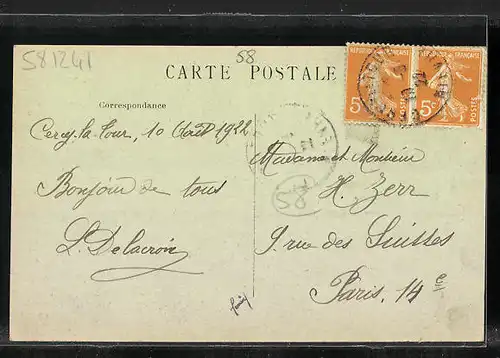 581241
58
CARTE POSTALE
RÉPUBLIQUE FRANÇAISE
RÉPUBLIQUE FRANÇAISE
5c
5c
POSTES
POSTES
Correspondance
Cercy-la-Tour, 10 Août 1922
Bonjour de tous
L. Delacroix
Madame et Monsieur
H. Zerr
9 rue des Suisses
Paris, 14e
58